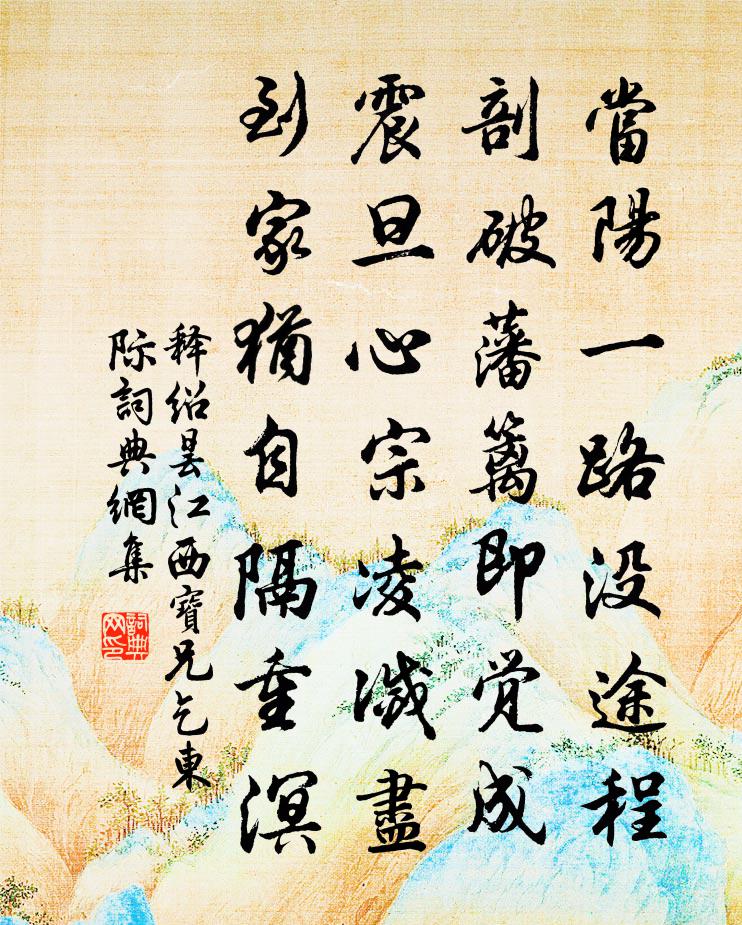 當陽一路没途程
剖破藩籬即覺成
震旦心宗凌滅盡
到家猶自隔重溟
释绍昙江西寶兄乞東
际詞典網集
詞典網印